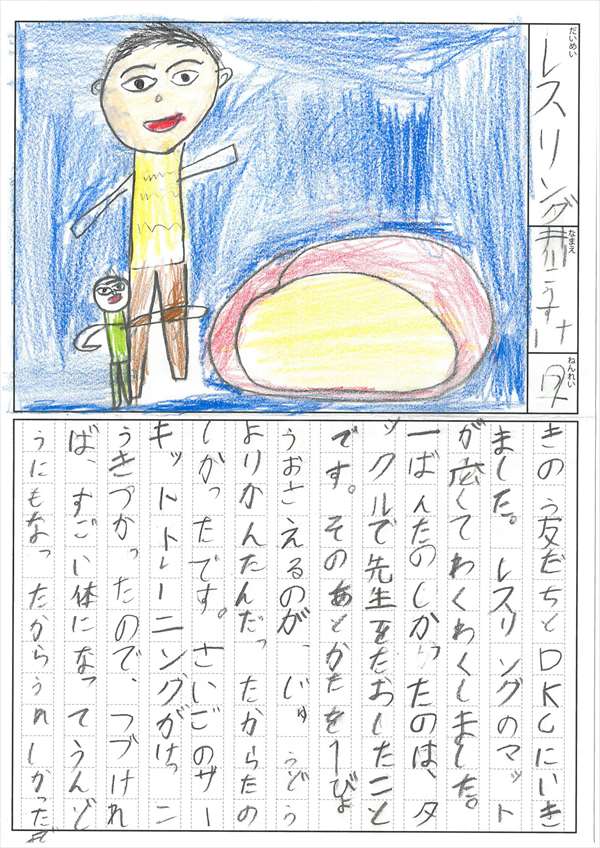 だいめい
レスリング
なまえ
こうすけ
ねんれい
きのう友だちとDKCにいき
ました。レスリングのマット
が広くてわくわくしました。
一ばんたのしかったのは、タ
ックルで先生をたおしたこと
です。そのあとかたを一びょ
うおさえるのが、じゅうどう
よりかんたんだったからたの
しかったです。さいごのサー
キットトレーニングがけっこ
うきつかったので、つづけれ
ば、すごい体になってうんど
うにもなったからうれしかったです